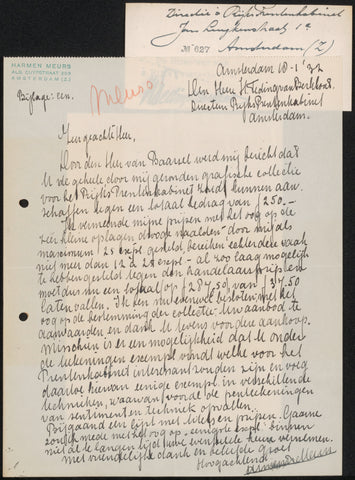 Directie's Rijks Prentenkabinet
Jan Luykenstraat 1a
No 627
Amsterdam (Z)
HARMEN MEURS
ALB. CUYPSTRAAT 259
AMSTERDAM
Bijlage: een.
Meurs
Amsterdam 10-1-'32
Den Heer
Directeur Rijks Prentenkabinet
Amsterdam.
Zeergeachte Heer,
Door den Heer van Baarsel werd mij bericht dat
U de geheele door mij gezonden grafische collectie
voor het Rijks Prentenkabinet zoudt kunnen aan-
schaffen tegen een totaal bedrag van ƒ 250.-
Ik vermeende mijne prijzen met het oog op de
zéér kleine oplagen drooge naalden door mij als
maximum 25 expl. gesteld, bereiken echter vaak
niet meer dan 12 à 18 expl. - al zoo laag mogelijk
te hebben gesteld tegen den handelaarsprijs en
moet dus nu een totaal op ƒ 287,50 van ƒ 37,50
laten vallen. Ik ben nu evenwel besloten met het
oog op de bestemming der collectie Uw aanbod te
aanvaarden en dank U tevens voor den aankoop.
Misschien is er een mogelijkheid dat U onder
de teekeningen exempl. vindt welke voor het
Prentenkabinet interessant zouden zijn en voeg
daartoe hiervan eenige exempl. in verschillende
technieken, waarvan vooral de penteekeningen
van sentiment en techniek opvallen.
Bijgaand een lijst met titels en prijzen. Gaarne
zou ik mede met het oog op eengrote expl. binnen
niet al te langen tijd Uwe eventuele keuze vernemen.
Met vriendelijke dank en beleefde groet
Hoogachtend
Harmen Meurs